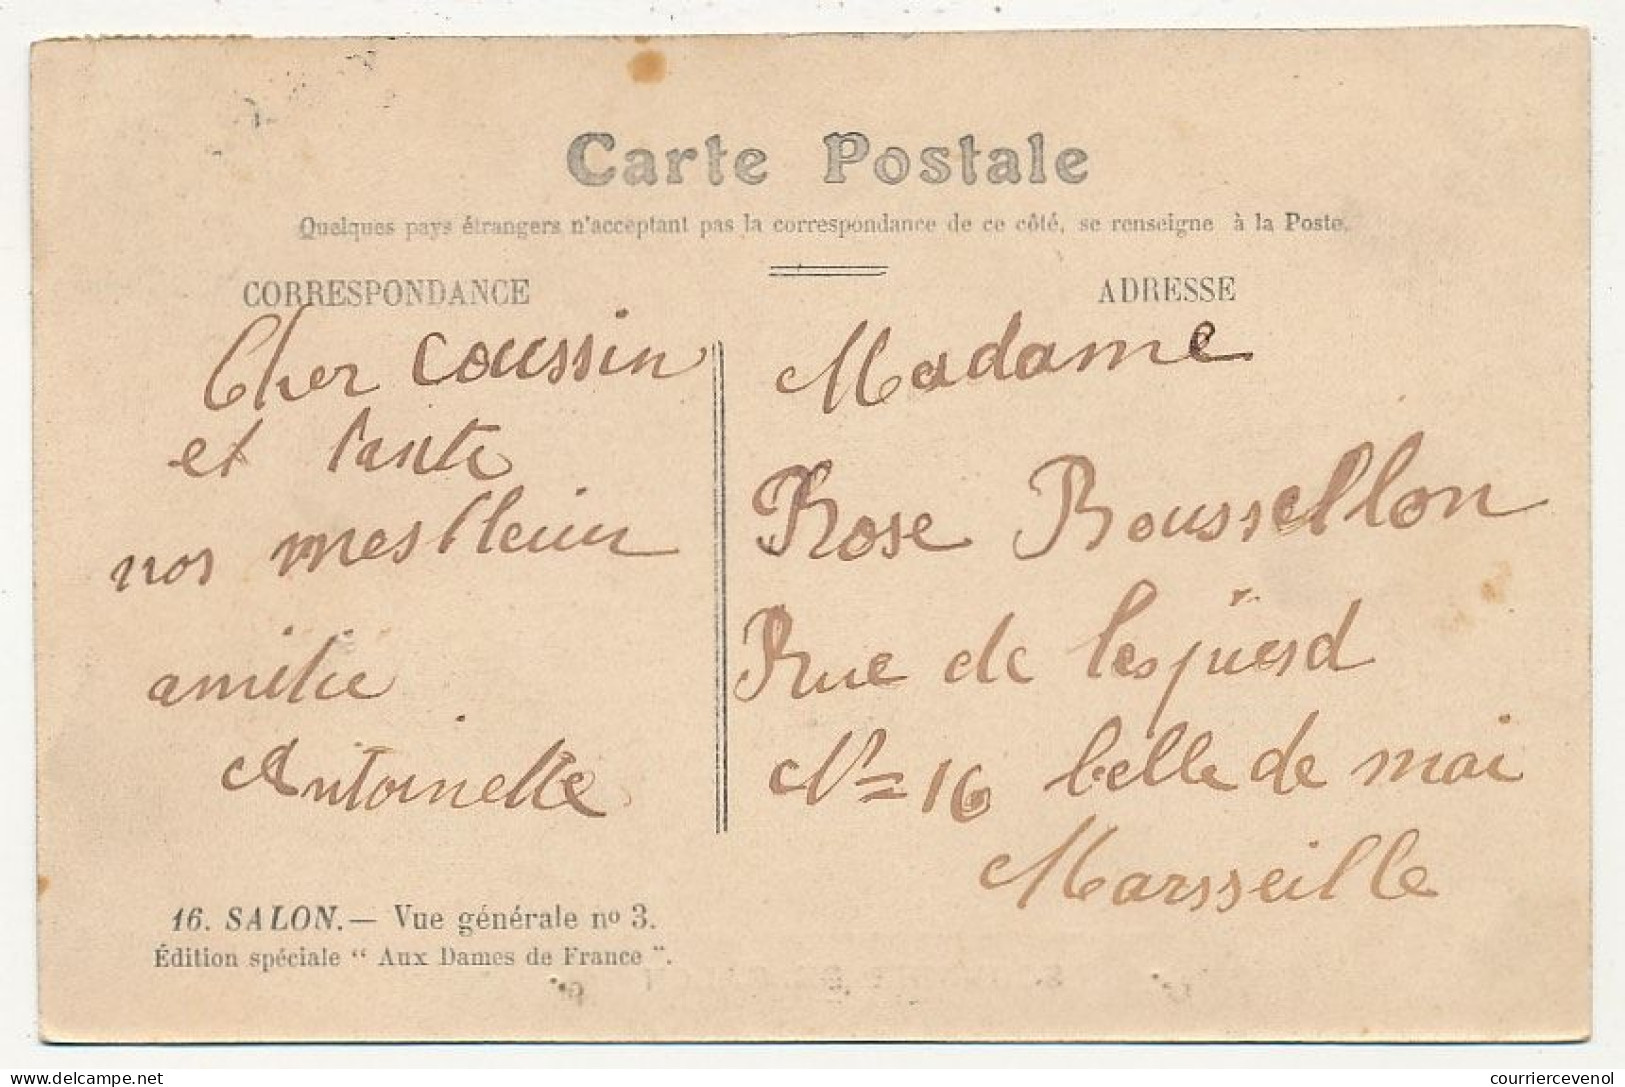 Carte Postale
Quelques pays étrangers n'acceptant pas la correspondance de ce côté, se renseigne à la Poste.
CORRESPONDANCE
Cher coussin
et tante
nos mes lleur
amitie
Antoinette
16. SALON. — Vue générale nº 3.
Édition spéciale “ Aux Dames de France ”.
ADRESSE
Madame
Rose Roussellon
Rue de
Nº 16 belle de mai
Marsseille
www.delcampe.net
courriercevenol